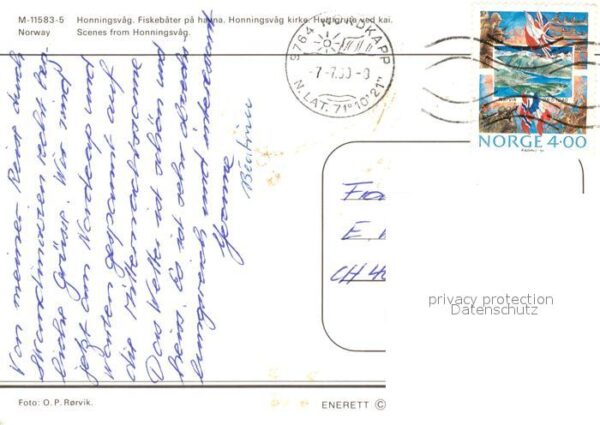 M-11583-5 Honningsvåg. Fiskebåter på havna. Honningsvåg kirke. Hurtigruta ved kai.
Norway Scenes from Honningsvåg.
9764 NORDKAPP
-7-7.90-0
N.LAT. 71°10'21"
NORGE 4.00
Von meiner Reise durch
Skandinavien recht herz-
liche Grüsse. Wir sind
jetzt am Nordcap und
warten gespannt auf
die Mitternachtssonne
Das Wetter ist schön und
heiss. Es ist sehr abwechs-
lungsreich und interessant
Yvonne
Beatrice
E.
CH
privacy protection
Datenschutz
Foto: O. P. Rørvik.
ENERETT ©